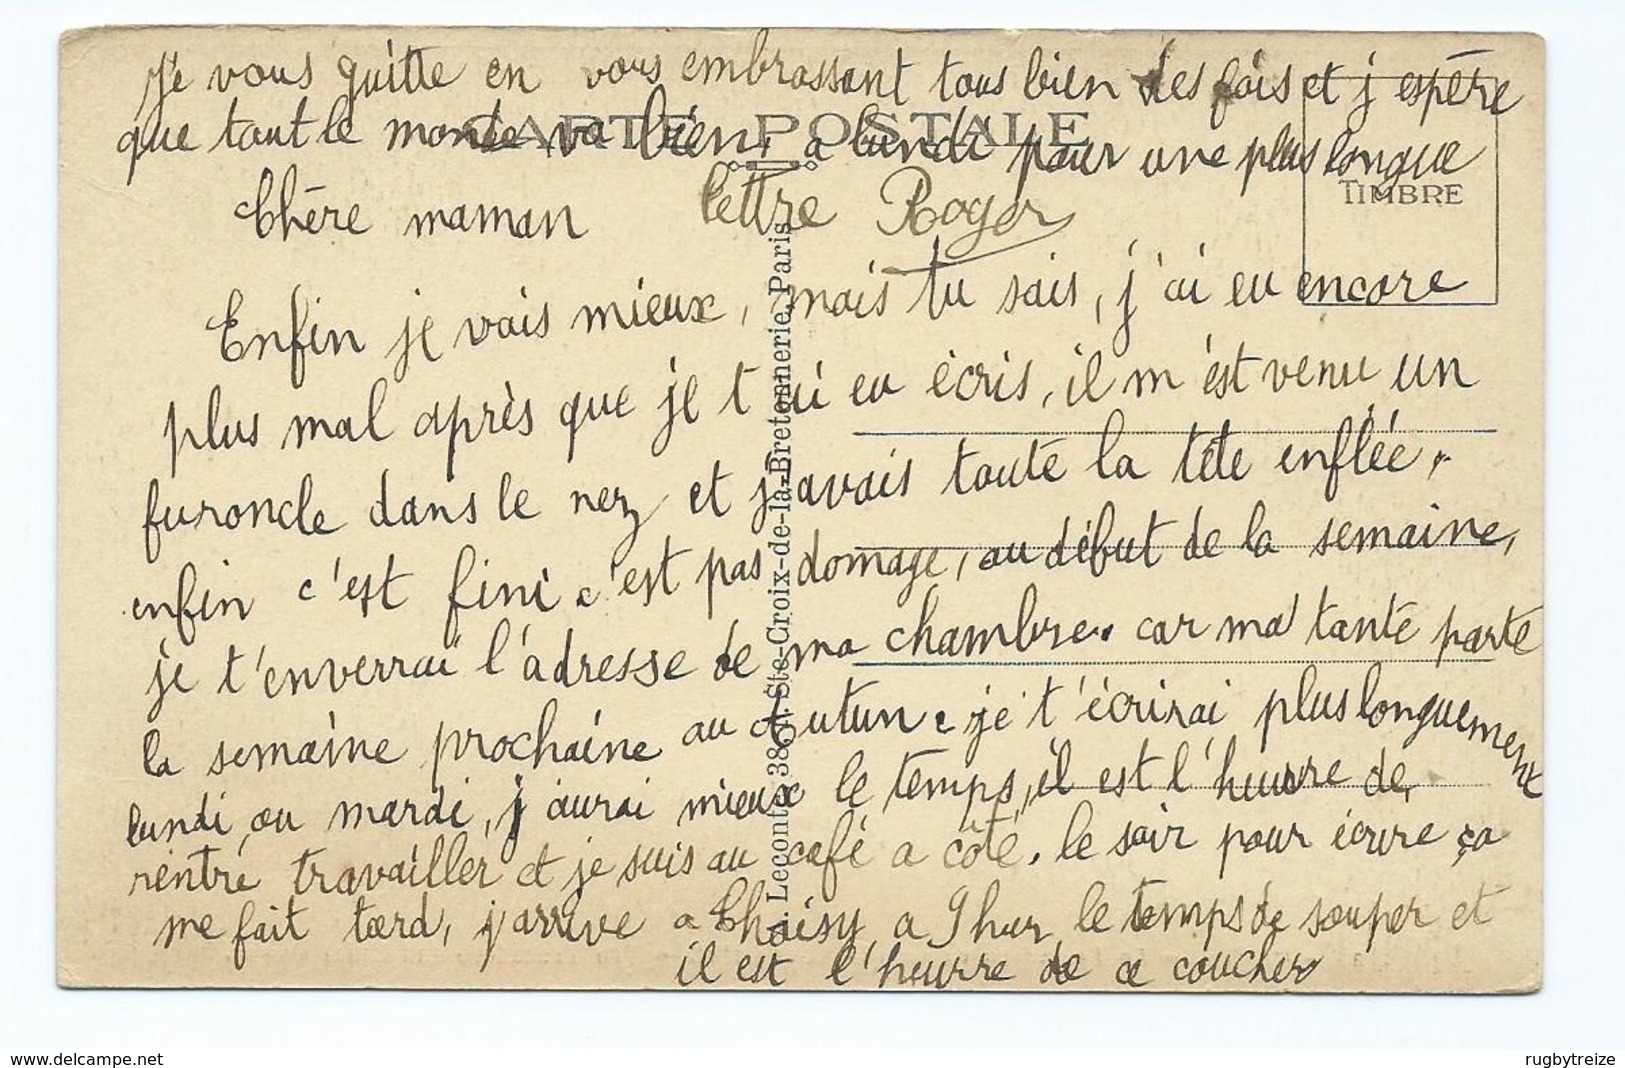 Je vous quitte en vous embrassant tous bien des fois et j espère
que tout le monde va bien, a lundi pour une plus longue
lettre Roger
CARTE POSTALE
TIMBRE
Chère maman
Enfin je vais mieux, mais tu sais, j'ai eu encore
plus mal après que je t ai eu écris, il m'est venu un
furoncle dans le nez et j'avais toute la tête enflée,
enfin c'est fini c'est pas domage, au début de la semaine,
je t'enverrai l'adresse de ma chambre. car ma tante parte
la semaine prochaine au Autun. je t'écrirai plus longuement
lundi ou mardi, j aurai mieux le temps, il est l'heurre de
rentré travailler et je suis au café a côté. le soir pour écrire ça
me fait tard, j'arrive a Choisy a 9 hur le temps de souper et
il est l'heurre de ce coucher
Leconte, 38, r. Ste-Croix-de-la-Bretonnerie, Paris
www.delcampe.net
rugbytreize